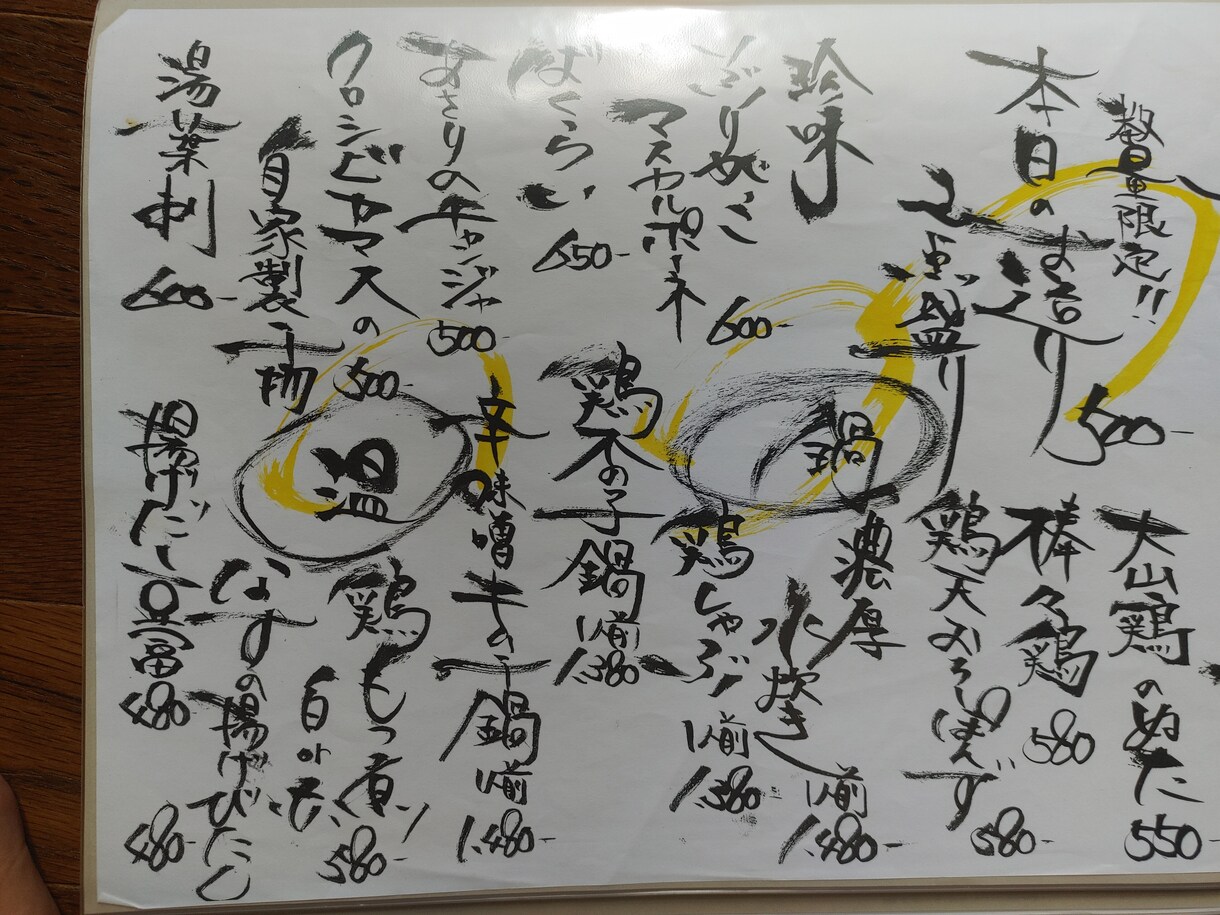 数量限定!!
本日のお造り
2点盛り
500-
珍味
いぶりがっこ
マスカルポーネ
600-
ばくらい
650-
あさりのチャンジャ
500-
クロシビカマスの
自家製干物
500-
湯葉刺
600-
大山鶏のぬた
550-
棒々鶏
580
鶏天おろしぽんず
580-
鍋
濃厚
水炊き
1人前
1,480-
鶏しゃぶ
1人前
1,380-
鶏木の子鍋
1人前
1,380-
辛味噌牛の干鍋
1人前
1,480-
温
鶏もつ煮
580-
白or赤
なすの揚げびたし
480-
揚げだし豆富
480-